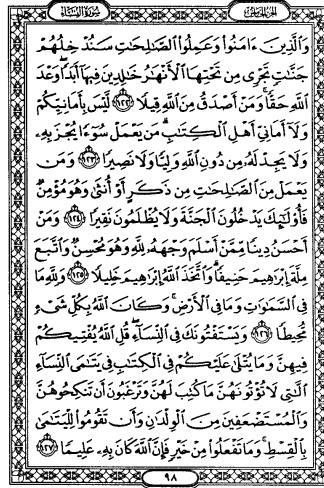 سُورَةُ النِّسَاءِ الجُزْءُ الخَامِسُ
وَالَّذِينَ ءَامَنُوا وَعَمِلُوا الصَّالِحَاتِ سَنُدْخِلُهُمْ
جَنَّاتٍ تَجْرِي مِن تَحْتِهَا الْأَنْهَارُ خَالِدِينَ فِيهَا أَبَدًا وَعْدَ
اللَّهِ حَقًّا وَمَنْ أَصْدَقُ مِنَ اللَّهِ قِيلًا ١٢٢ لَّيْسَ بِأَمَانِيِّكُمْ
وَلَا أَمَانِيِّ أَهْلِ الْكِتَابِ مَن يَعْمَلْ سُوءًا يُجْزَ بِهِ
وَلَا يَجِدْ لَهُ مِن دُونِ اللَّهِ وَلِيًّا وَلَا نَصِيرًا ١٢٣ وَمَن
يَعْمَلْ مِنَ الصَّالِحَاتِ مِن ذَكَرٍ أَوْ أُنثَى وَهُوَ مُؤْمِنٌ
فَأُولَئِكَ يَدْخُلُونَ الْجَنَّةَ وَلَا يُظْلَمُونَ نَقِيرًا ١٢٤ وَمَنْ
أَحْسَنُ دِينًا مِّمَّنْ أَسْلَمَ وَجْهَهُ لِلَّهِ وَهُوَ مُحْسِنٌ وَاتَّبَعَ
مِلَّةَ إِبْرَاهِيمَ حَنِيفًا وَاتَّخَذَ اللَّهُ إِبْرَاهِيمَ خَلِيلًا ١٢٥ وَلِلَّهِ مَا
فِي السَّمَاوَاتِ وَمَا فِي الْأَرْضِ وَكَانَ اللَّهُ بِكُلِّ شَيْءٍ
مُّحِيطًا ١٢٦ وَيَسْتَفْتُونَكَ فِي النِّسَاءِ قُلِ اللَّهُ يُفْتِيكُمْ
فِيهِنَّ وَمَا يُتْلَى عَلَيْكُمْ فِي الْكِتَابِ فِي يَتَامَى النِّسَاءِ
الَّتِي لَا تُؤْتُونَهُنَّ مَا كُتِبَ لَهُنَّ وَتَرْغَبُونَ أَن تَنكِحُوهُنَّ
وَالْمُسْتَضْعَفِينَ مِنَ الْوِلْدَانِ وَأَن تَقُومُوا لِلْيَتَامَى
بِالْقِسْطِ وَمَا تَفْعَلُوا مِنْ خَيْرٍ فَإِنَّ اللَّهَ كَانَ بِهِ عَلِيمًا ١٢٧
٩٨